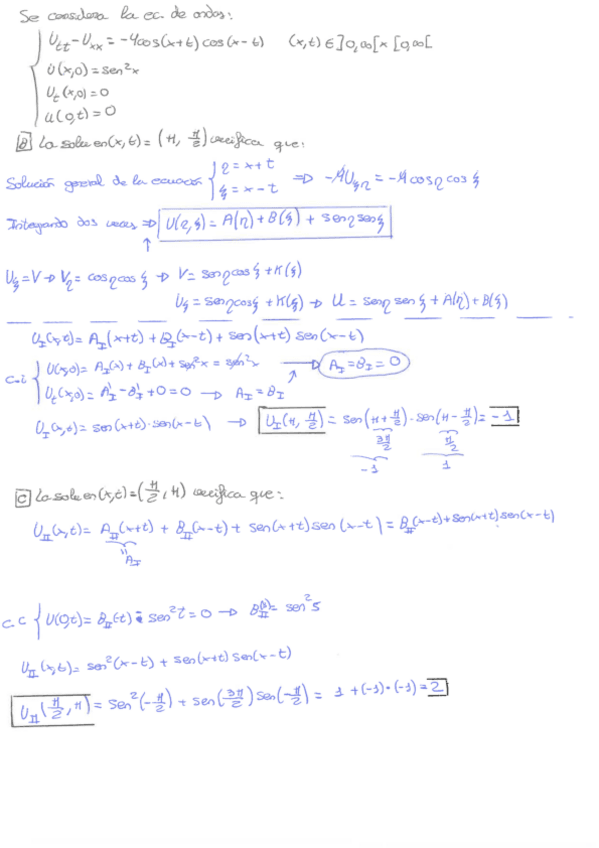 Se considera la ec. de ondas:
U_tt - U_xx = -4cos(x+t)cos(x-t) (x,t) ∈ ]0,∞[ x [0,∞[
U(x,0) = sen²x
U_t(x,0) = 0
u(0,t) = 0
B La solu en (x,t) = (π, π/2) verifica que:
Solución general de la ecuación { η = x+t ξ = x-t ⇒ -4U_ξη = -4cosη cosξ
Integrando dos veces ⇒ U(η,ξ) = A(η) + B(ξ) + senη senξ
U_ξ = V → V_η = cosη cosξ → V = senη cosξ + K(ξ)
U_ξ = senη cosξ + K(ξ) → U = senη senξ + A(η) + B(ξ)
U_I(x,t) = A_I(x+t) + B_I(x-t) + sen(x+t) sen(x-t)
C.i { U(x,0) = A_I(x) + B_I(x) + sen²x = sen²x → A_I = B_I = 0
U_t(x,0) = A'_I - B'_I + 0 = 0 → A_I = B_I
U_I(x,t) = sen(x+t)·sen(x-t) → U_I(π, π/2) = sen(π + π/2)·sen(π - π/2) = -1
3π/2 π/2
-1 1
C La solu en (x,t) = (π/2, π) verifica que:
U_II(x,t) = A_II(x+t) + B_II(x-t) + sen(x+t) sen(x-t) = B_II(x-t) + sen(x+t) sen(x-t)
"
A_I
C.C { U(0,t) = B_II(-t) - sen²t = 0 → B_II(s) = sen²s
U_II(x,t) = sen²(x-t) + sen(x+t) sen(x-t)
U_II(π/2, π) = sen²(-π/2) + sen(3π/2) sen(-π/2) = 1 + (-1)·(-1) = 2